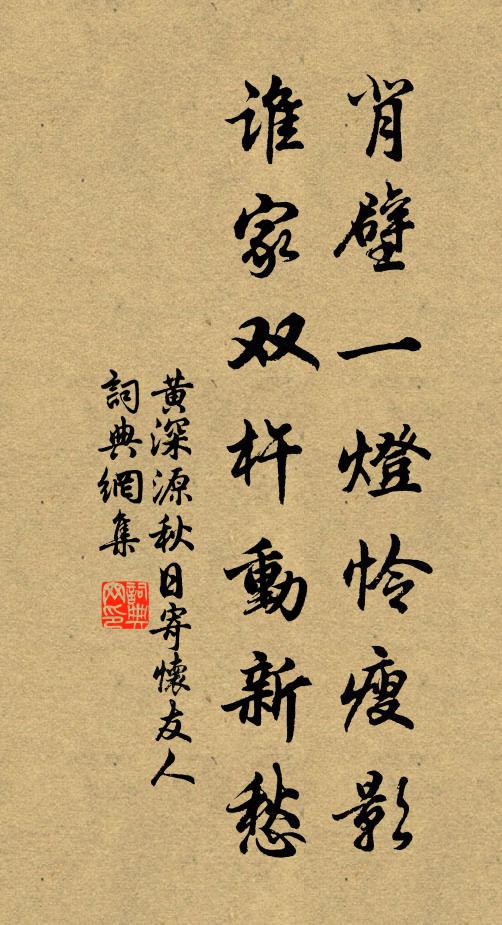 肖壁一燈怜瘦影
谁家双杵動新愁
黄深源秋日寄懷友人
詞典網集
詞典网印